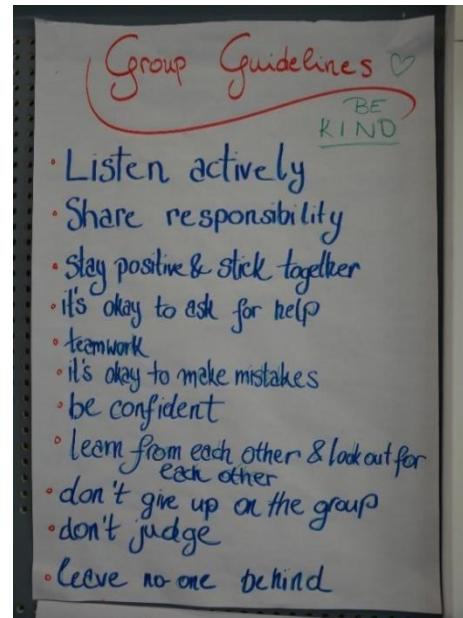 Group Guidelines ♡
BE
KIND
• Listen actively
• Share responsibility
• Stay positive & stick together
• it's okay to ask for help
• teamwork
• it's okay to make mistakes
• be confident
• learn from each other & look out for
each other
• don't give up on the group
• don't judge
• leave no one behind